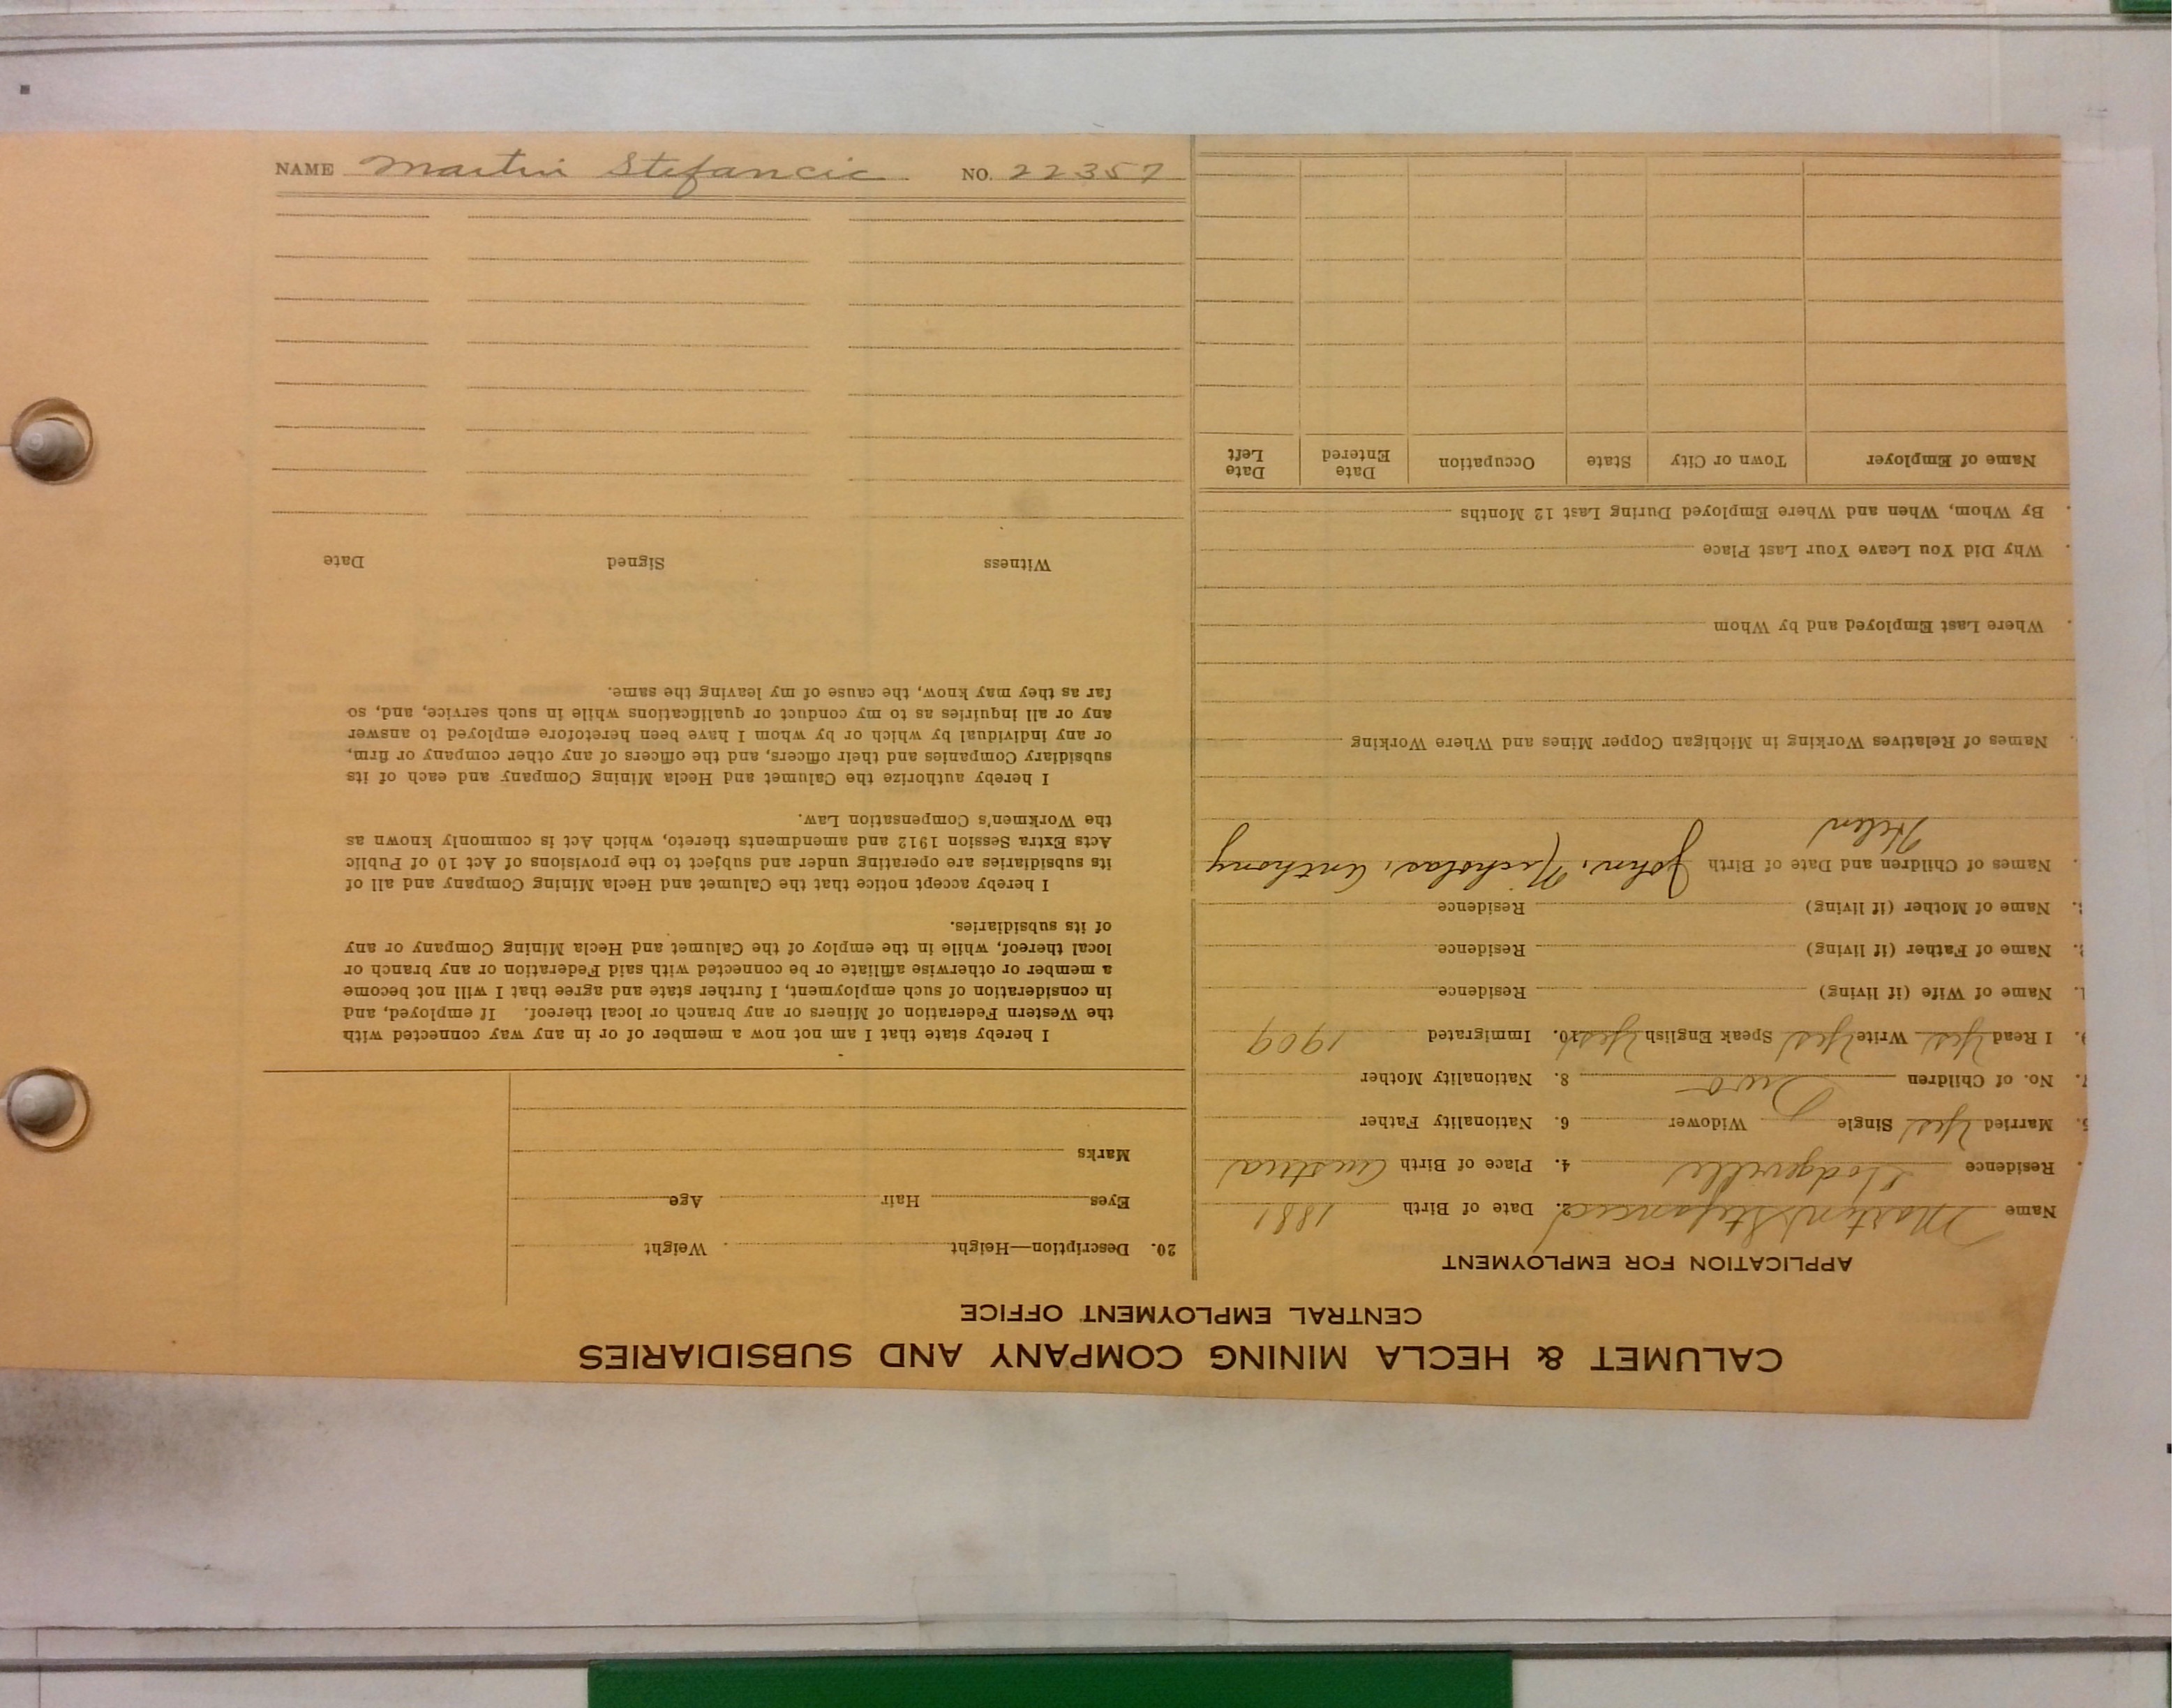 NAME Martin Stefancic NO. 22357
CALUMET & HECLA MINING COMPANY AND SUBSIDIARIES
CENTRAL EMPLOYMENT OFFICE
APPLICATION FOR EMPLOYMENT
Name Martin Stefancic 2. Date of Birth 1881
Residence Dodgeville 4. Place of Birth Austria
5. Married Yes Single Widower 6. Nationality Father
7. No. of Children Two 8. Nationality Mother
9. I Read Yes Write Yes Speak English Yes 10. Immigrated 1909
1. Name of Wife (if living) Residence
2. Name of Father (if living) Residence
3. Name of Mother (if living) Residence
Names of Children and Date of Birth John, Nicholas, Anthony
Helen
Names of Relatives Working in Michigan Copper Mines and Where Working
Where Last Employed and by Whom
Why Did You Leave Your Last Place
By Whom, When and Where Employed During Last 12 Months
Name of Employer Town or City State Occupation Date Entered Date Left
20. Description—Height Weight
Eyes Hair Age
Marks
I hereby state that I am not now a member of or in any way connected with
the Western Federation of Miners or any branch or local thereof. If employed, and
in consideration of such employment, I further state and agree that I will not become
a member or otherwise affiliate or be connected with said Federation or any branch or
local thereof, while in the employ of the Calumet and Hecla Mining Company or any
of its subsidiaries.
I hereby accept notice that the Calumet and Hecla Mining Company and all of
its subsidiaries are operating under and subject to the provisions of Act 10 of Public
Acts Extra Session 1912 and amendments thereto, which Act is commonly known as
the Workmen's Compensation Law.
I hereby authorize the Calumet and Hecla Mining Company and each of its
subsidiary Companies and their officers, and the officers of any other company or firm,
or any individual by which or by whom I have been heretofore employed to answer
any or all inquiries as to my conduct or qualifications while in such service, and, so
far as they may know, the cause of my leaving the same.
Witness Signed Date